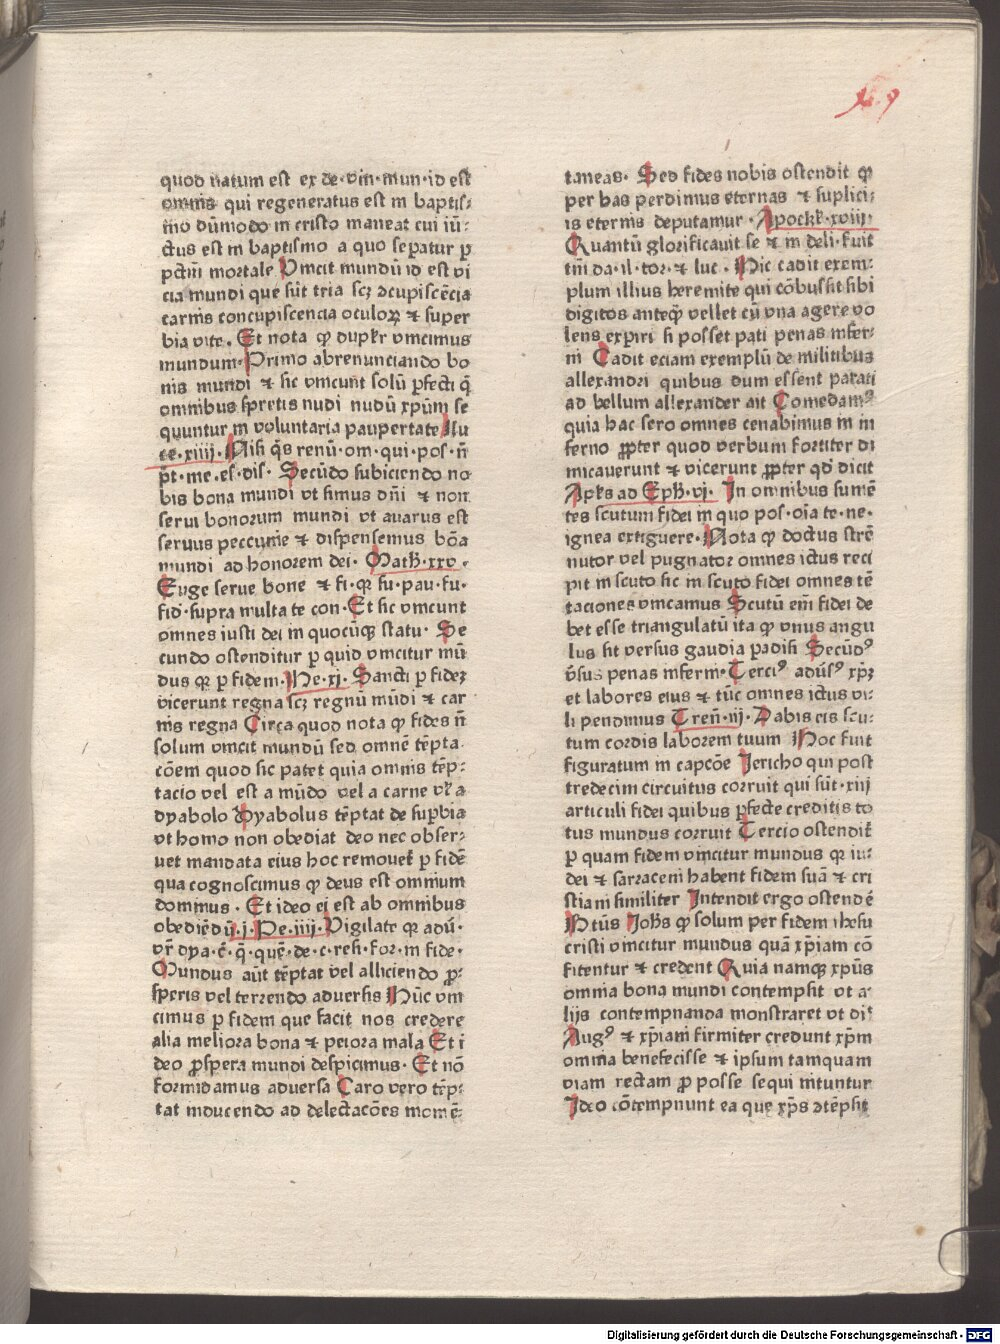 quod natum est ex de·vin·mun·id est
omnis qui regeneratus est in baptis⸗
mo dūmodo in cristo maneat cui iū⸗
ctus est in baptismo a quo separatur ꝑ
pctm̄ mortale Vincit mundū id est vi
cia mundi que sūt tria scꝫ ↄcupiscēcia
carnis concupiscencia oculoꝝ ⁊ super
bia vite. Et nota ꝙ duplr vincimus
mundum·Primo abrenunciando bo
nis mundi ⁊ sic vincunt solū ꝑfecti q̄
omnibus spretis nudi nudū xpūm se
quuntur in voluntaria paupertate Lu
ce·xiiij·Nisi q̄s renū·om·qui·pos·n̄
p̄t·me·es·dis· Secūdo subiciendo no
bis bona mundi vt simus dn̄i ⁊ non
serui bonorum mundi vt auarus est
seruus peccunie ⁊ dispensemus bōa
mundi ad honorem dei· Math·xxv·
Euge serue bone ⁊ fi·qꝛ su·pau·fu·
fid·supra multa te con·Et sic vincunt
omnes iusti dei in quocūqꝫ statu· Se
cundo ostenditur ꝑ quid vincitur mū
dus qꝛ ꝑ fidem·He·xj·Sancti ꝑ fideꝫ
vicerunt regna scꝫ regnū mūdi ⁊ car
nis regna Circa quod nota ꝙ fides n̄
solum vincit mundū sed omnē tēpta⸗
cōem quod sic patet quia omnis tēp⸗
tacio vel est a mūdo vel a carne vl̄ a
dyabolo Dyabolus tēptat de suꝑbia
vt homo non obediat deo nec obser⸗
uet mandata eius hoc remouet ꝑ fidē
qua cognoscimus ꝙ deus est omnium
dominus· Et ideo ei est ab omnibus
obediēdū·j·Pe·iiij·Vigilate qꝛ adū·
vr̄ dya·c̄·q̄·que·de·c·resi·for·in fide·
Mundus aūt tēptat vel alliciendo ꝓ⸗
speris vel terrendo aduersis Hūc vin
cimus ꝑ fidem que facit nos credere
alia meliora bona ⁊ peiora mala Et i
deo ꝓspera mundi despicimus· Et nō
formidamus aduersa Caro vero tēp⸗
tat inducendo ad delectacōes momē⸗
taneas· Sed fides nobis ostendit ꝙ
per has perdimus eternas ⁊ suplici⸗
is eternis deputamur·Apock·xviij·
Quantū glorificauit se ⁊ in deli·fuit
tm̄ da·il·tor·⁊ luc·Hic cadit exem⸗
plum illius heremite qui cōbussit sibi
digitos anteqꝫ vellet cū vna agere vo
lens exꝑiri si posset pati penas infer⸗
ni Cadit eciam exemplū de militibus
allexandri quibus dum essent parati
ad bellum allexander ait Comedamꝰ
quia hac sero omnes cenabimus in in
ferno ꝓpter quod verbum fortiter di
micauerunt ⁊ vicerunt ꝓpter qd dicit
Apls ad Eph·vj· In omnibus sumē
tes scutum fidei in quo pos·oīa te·ne·
ignea extiguere·Nota ꝙ doctus strē
nutor vel pugnator omnes ictus reci
pit in scuto sic in scuto fidei omnes tē
taciones vincamus Scutū em̄ fidei de
bet esse triangulatū ita ꝙ vnus angu
lus sit versus gaudia ꝑadisi Secūdꝰ
v̄sus penas inferni·Terciꝰ adūsꝰ xpꝫ
et labores eius ⁊ tūc omnes ictus vi⸗
li pendimus Tren·iij·Dabis eis scu⸗
tum cordis laborem tuum Hoc fuit
figuratum in capcōe Jericho qui post
tredecim circuitus corruit qui sūt·xiij
articuli fidei quibus ꝑfecte creditis to
tus mundus corruit Tercio ostendit
ꝑ quam fidem vincitur mundus qꝛ iu⸗
dei ⁊ sarraceni habent fidem suā ⁊ cri
stiani similiter Intendit ergo ostendē
btūs Johs ꝙ solum per fidem ihesu
cristi vincitur mundus quā xp̄iani cō
fitentur ⁊ credent Quia namqꝫ xpūs
omnia bona mundi contempsit vt a⸗
lijs contempnanda monstraret vt dit
Augꝰ ⁊ xp̄iani firmiter credunt xpm̄
omnia benefecisse ⁊ ipsum tamquam
viam rectam ꝓ posse sequi nituntur
Ideo cōtempnunt ea que xp̄s ↄtēpsit
Digitalisierung gefördert durch die Deutsche Forschungsgemeinschaft · DFG